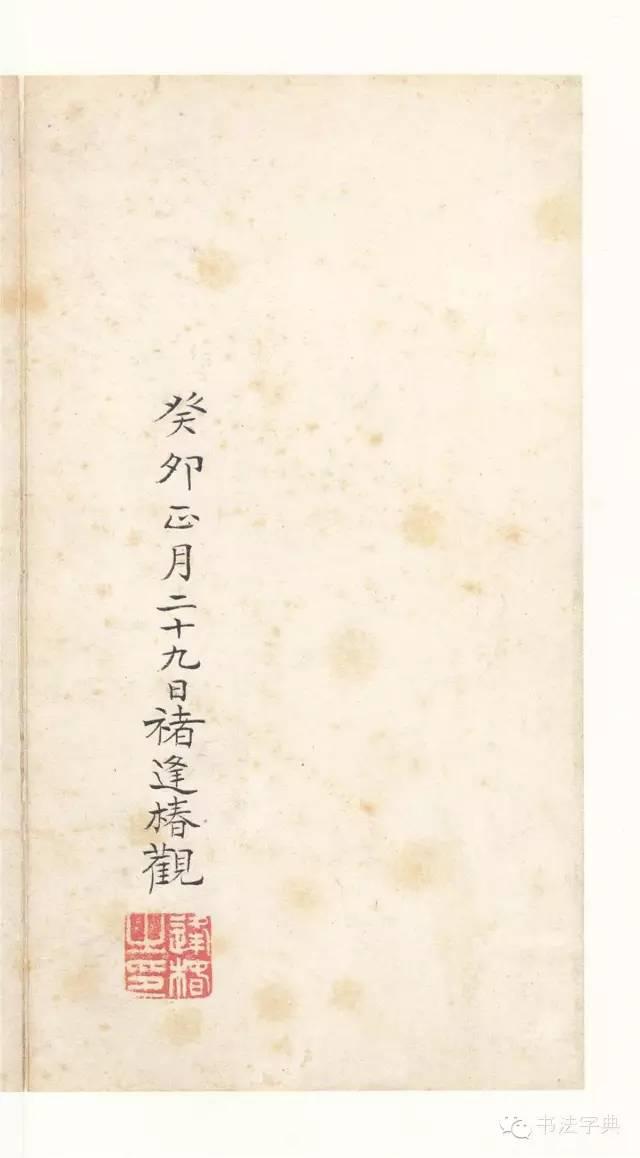 癸卯正月二十九日褚逢椿觀
逢椿
之印
书法字典